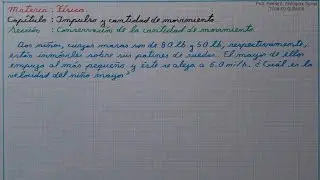 Materia : Física.
Capítulo : Impulso y cantidad de movimiento
Sección : Conservación de la cantidad de movimiento
Dos niños, cuyas masas son de 80 lb y 50 lb, respectivamente,
están inmóviles sobre sus patines de ruedas. El mayor de ellos
empuja al más pequeño y éste se aleja a 6.0 mi/h. ¿Cuál es la
velocidad del niño mayor?